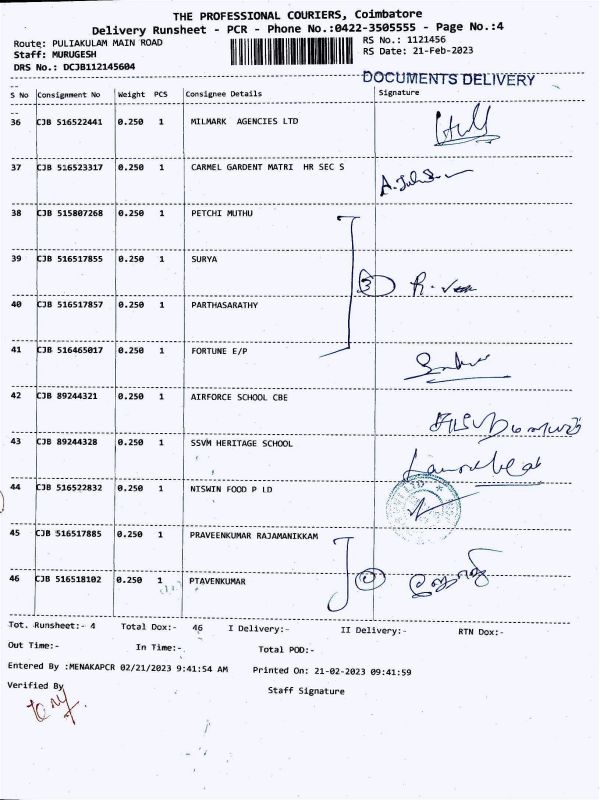 THE PROFESSIONAL COURIERS, Coimbatore
Delivery Runsheet - PCR - Phone No.:0422-3505555 - Page No.:4
Route: PULIAKULAM MAIN ROAD
RS No.: 1121456
Staff: MURUGESH
RS Date: 21-Feb-2023
DRS No.: DCJB112145604
DOCUMENTS DELIVERY
S No Consignment No Weight PCS Consignee Details Signature
36 CJB 516522441 0.250 1 MILMARK AGENCIES LTD
37 CJB 516523317 0.250 1 CARMEL GARDENT MATRI HR SEC S
38 CJB 515807268 0.250 1 PETCHI MUTHU
39 CJB 516517855 0.250 1 SURYA
3
40 CJB 516517857 0.250 1 PARTHASARATHY
41 CJB 516465017 0.250 1 FORTUNE E/P
42 CJB 89244321 0.250 1 AIRFORCE SCHOOL CBE
43 CJB 89244328 0.250 1 SSVM HERITAGE SCHOOL
44 CJB 516522832 0.250 1 NISWIN FOOD P LD
45 CJB 516517885 0.250 1 PRAVEENKUMAR RAJAMANIKKAM
46 CJB 516518102 0.250 1 PTAVENKUMAR
Tot. Runsheet:- 4 Total Dox:- 46 I Delivery:- II Delivery:- RTN Dox:-
Out Time:- In Time:- Total POD:-
Entered By :MENAKAPCR 02/21/2023 9:41:54 AM Printed On: 21-02-2023 09:41:59
Verified By Staff Signature